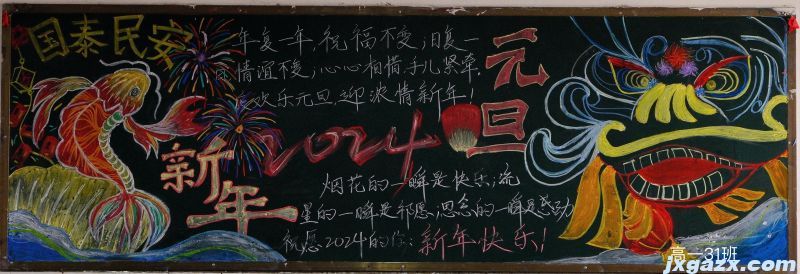 国泰民安
一年复一年,祝福不变;日复一
日情谊不变;心心相惜,手儿紧牵,
欢乐元旦,迎浓情新年!
元旦
新年
2024
烟花的一瞬是快乐;流
星的一瞬是祈愿;思念的一瞬是感动
祝愿2024的你:新年快乐!
高一31班
jxgazx.com